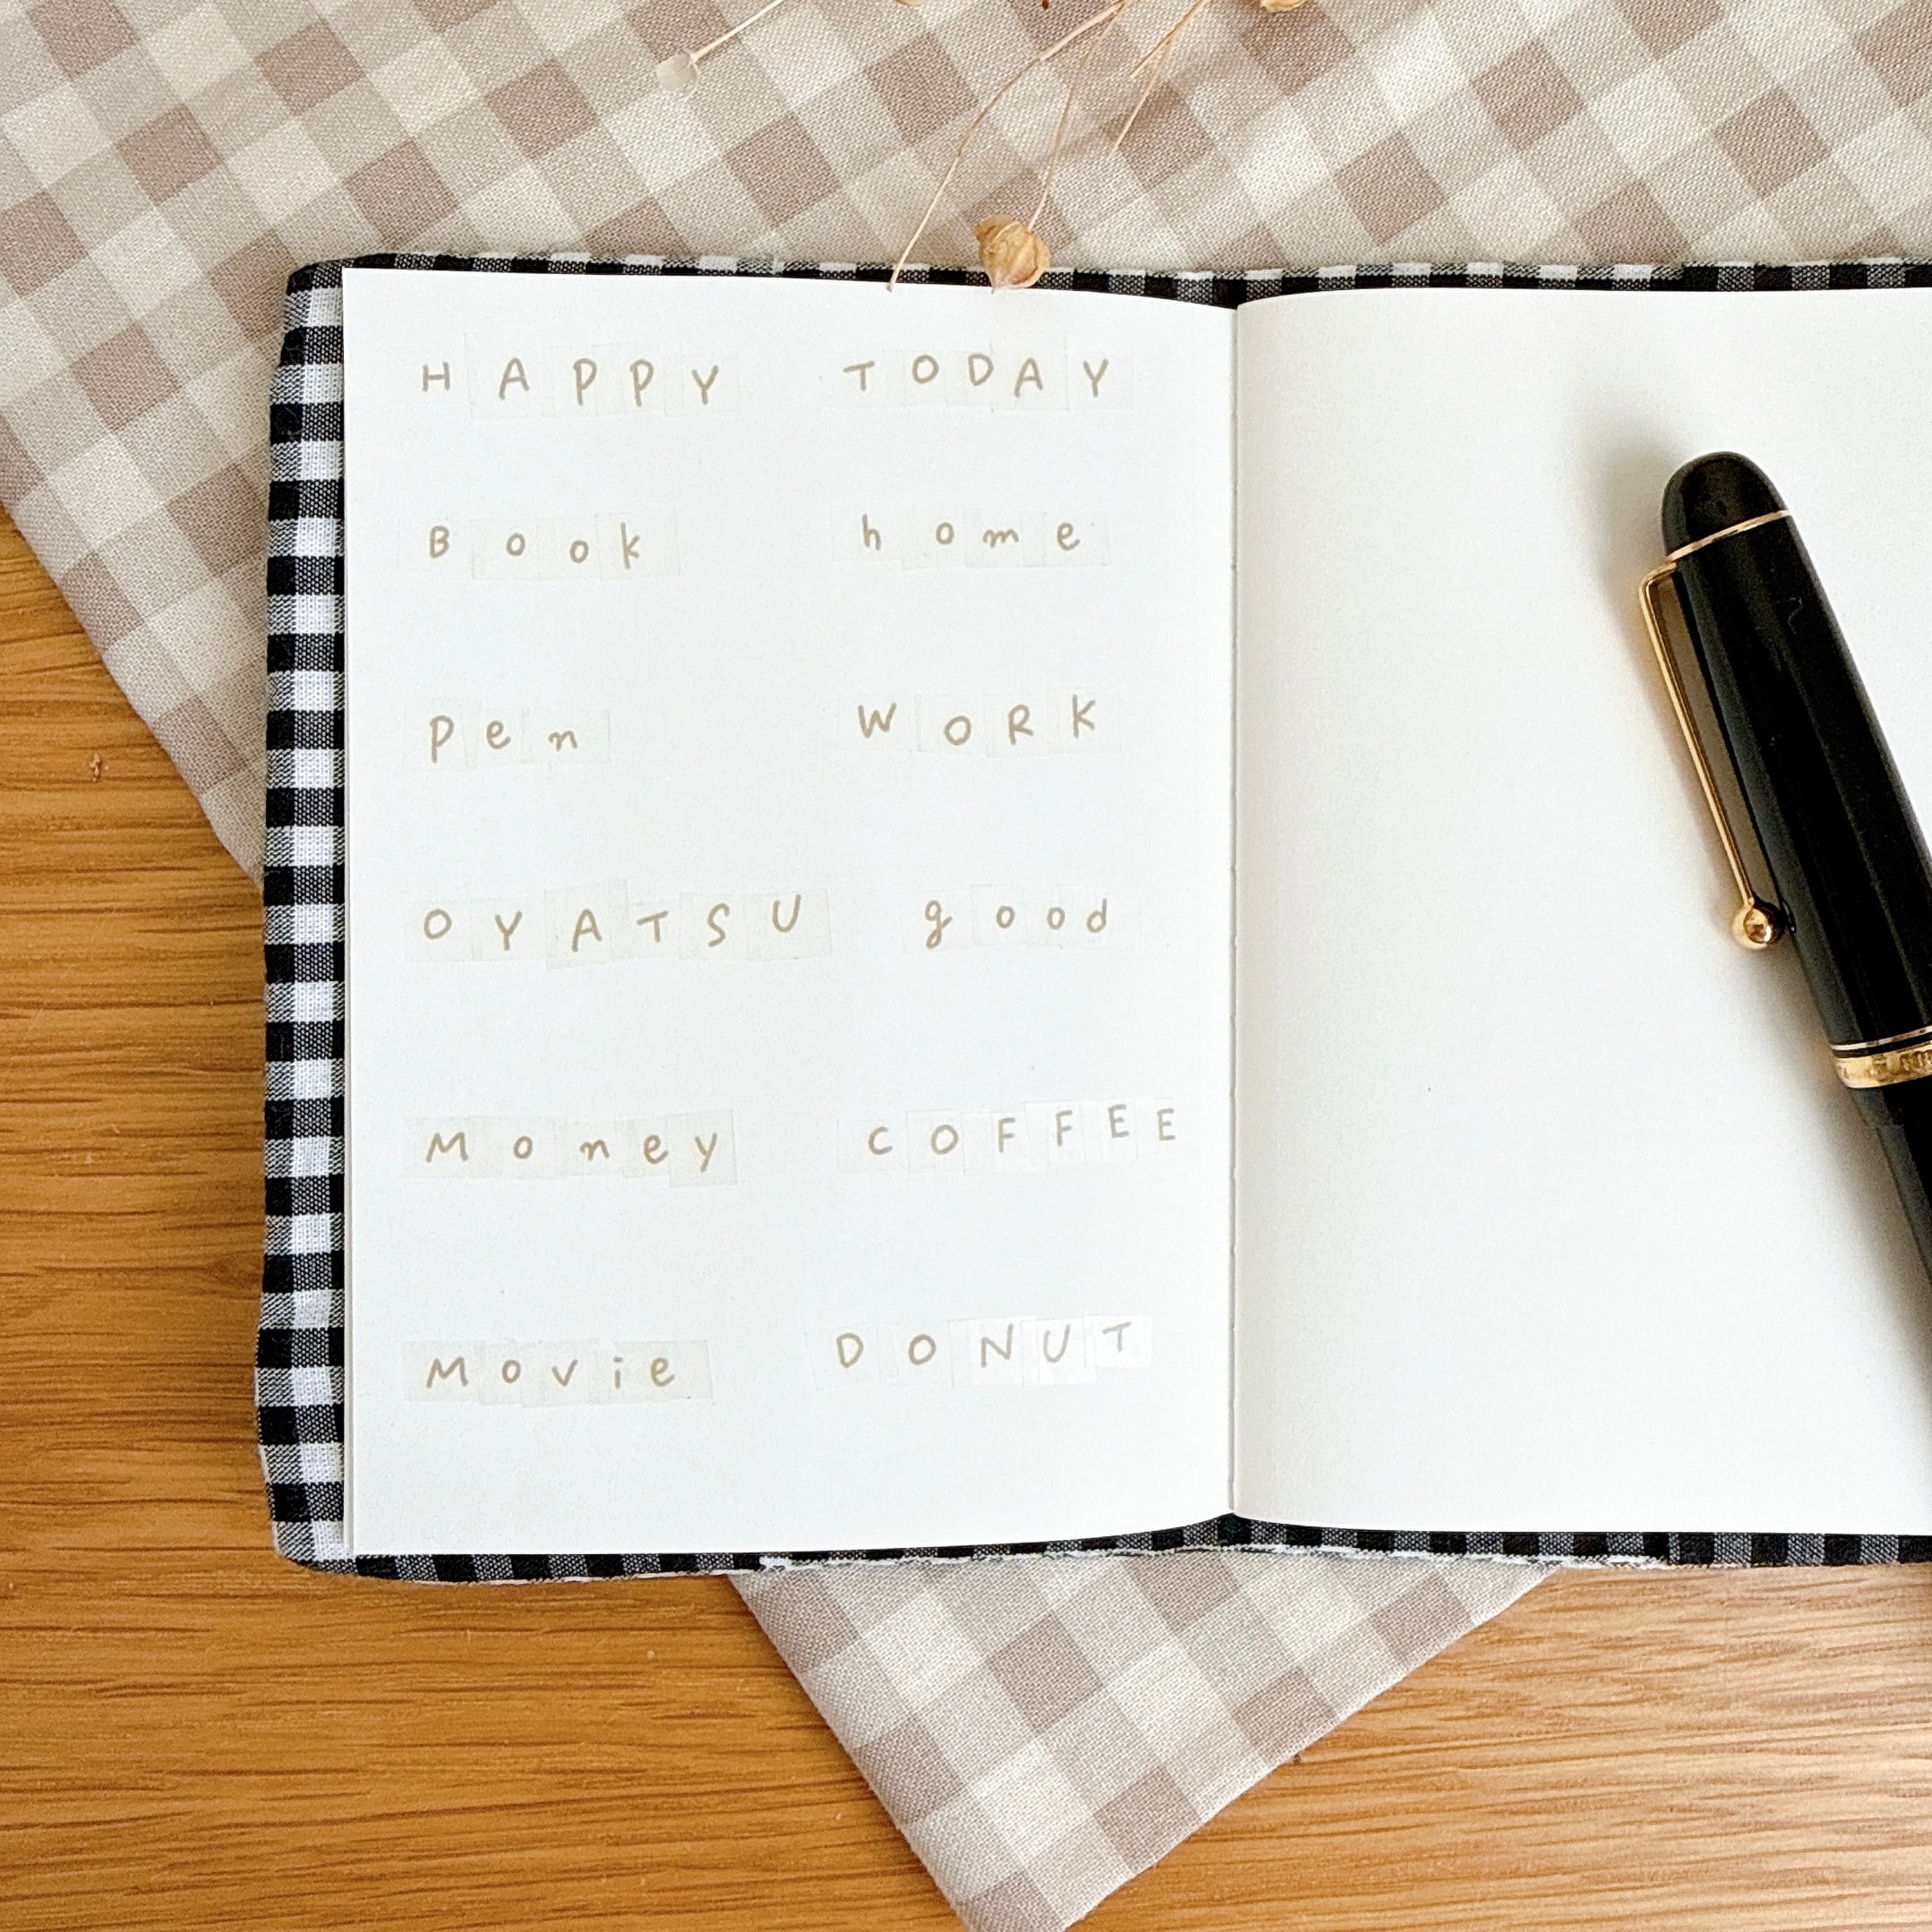 HAPPY TODAY
Book home
pen WORK
OYATSU good
Money COFFEE
Movie DONUT